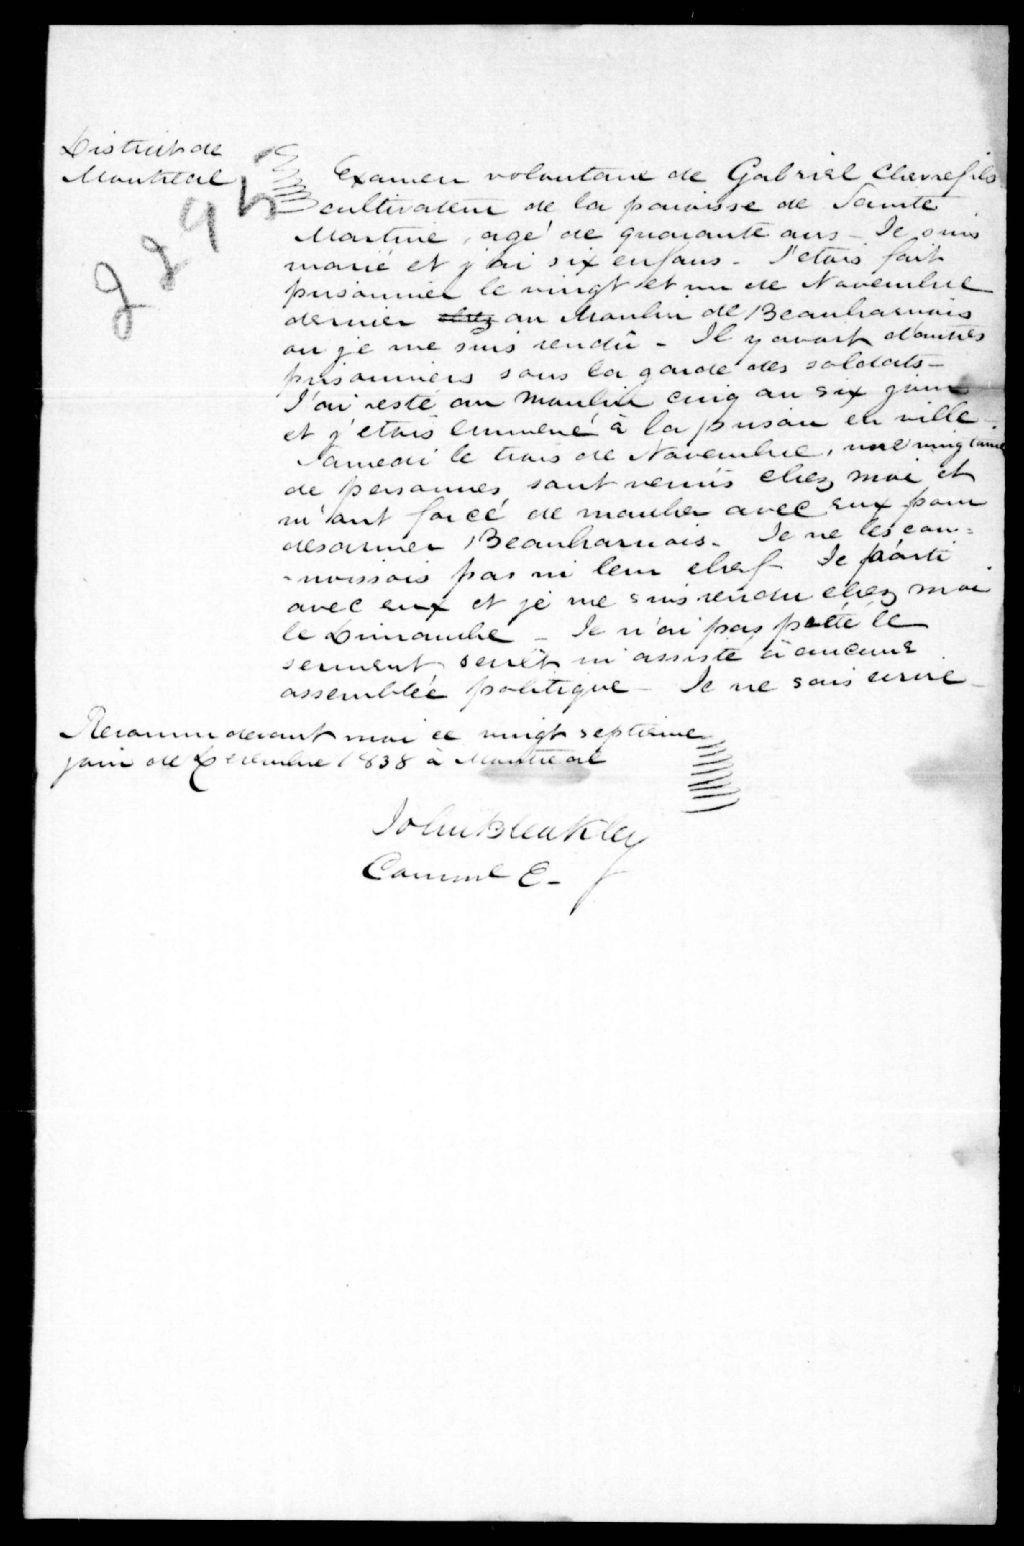 District de
Montreal
2295
Examen volontaire de Gabriel Chevrefils
cultivateur de la paroisse de Sainte
Martine, agé de quarante ans - Je suis
marié et j'ai six enfans - J'etais fait
prisonnier le vingt et un de Novembre
dernier chez au Moulin de Beauharnois
ou je me suis rendû - Il y avait d'autres
prisonniers sous la garde des soldats -
J'ai resté au moulin cinq au six jours
et j'etais emmené à la prison en ville -
Samedi le trois de Novembre, une vingtaine
de personnes sont venus chez moi et
m'ont forcé de marcher avec eux pour
desarmer Beauharnois - Je ne les con-
-noissois pas ni leur chef Je parti
avec eux et je me suis rendu chez moi
le Dimanche - Je n'ai pas preté le
serment secrêt ni assisté à aucune
assemblée politique - Je ne sais ecrire -
Reconnu devant moi ce vingt septieme
jour de Decembre 1838 à Montreal
John Bleakley
Commre E -